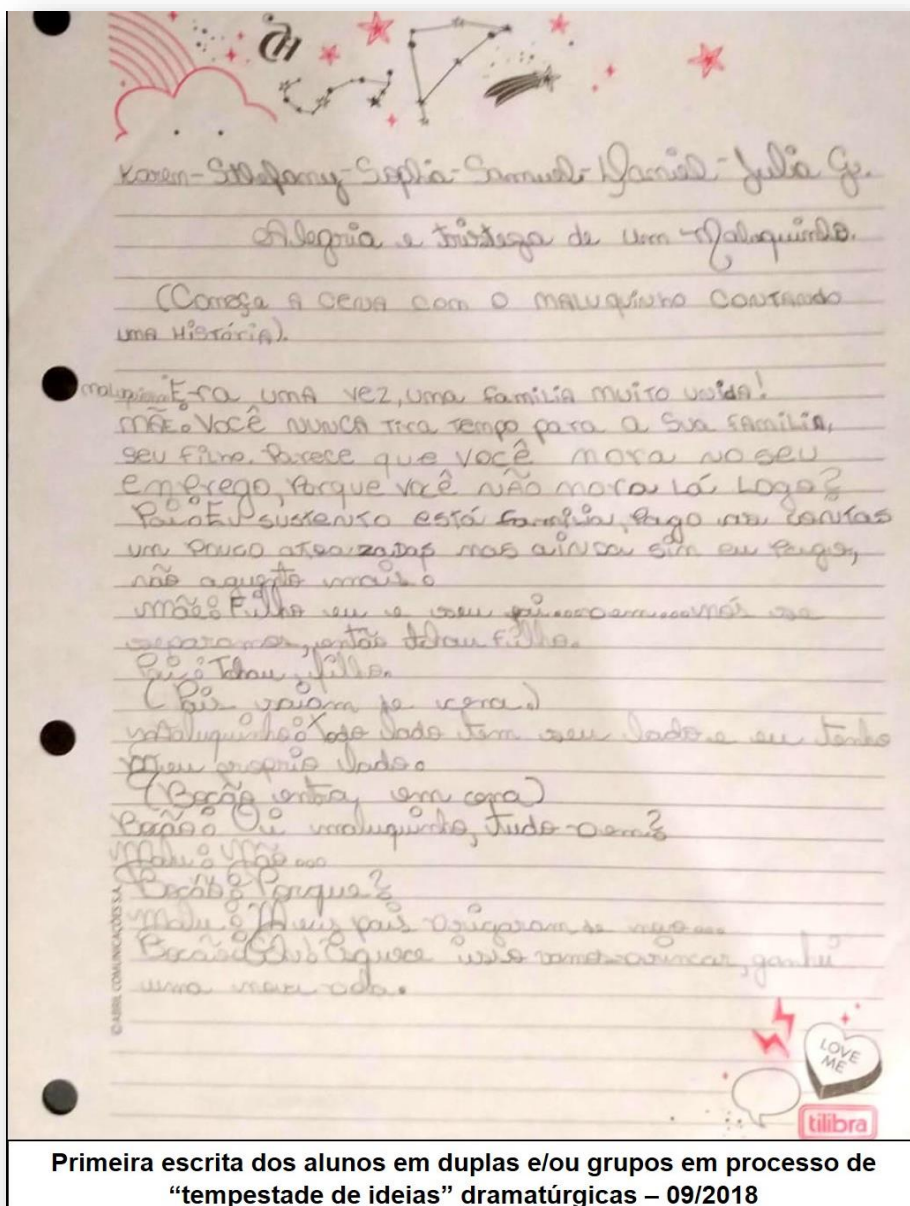 Karen-Stefany-Sophia-Samuel-Daniel-Julia G.
Alegria e tristeza de um Maluquinho.
(Começa A CENA com O MALUQUINHO CONTANDO
UMA HISTÓRIA).
maluquinho: Era UMA VEZ, UMA família MUITO UNIDA!
MÃE: Você NUNCA TIRA TEMPO para A SUA FAMÍLIA,
seu filho. Parece que você mora NO SEU
emprego, Porque você NÃO mora Lá Logo?
Pai: EU SUSTENTO está família, Pago as contas
um pouco atrazadas mas ainda sim eu pago,
não aguento mais.
mãe: Filho eu e seu pai....bem....nós se
separamos, então tchau filho.
Pai: Tchau, filho.
(Pais saiam de cena.)
Maluquinho: Todo lado tem seu lado e eu tenho
meu proprio lado.
(Bocão entra, em cena)
Bocão: Oi maluquinho, tudo bem?
Malu: Não...
Bocão: Porque?
Malu: Meus pais brigaram de
Bocão: isso vamos brincar, ganhei
uma
©ABRIL COMUNICAÇÕES S.A.
LOVE
ME
tilibra
Primeira escrita dos alunos em duplas e/ou grupos em processo de
“tempestade de ideias” dramatúrgicas – 09/2018